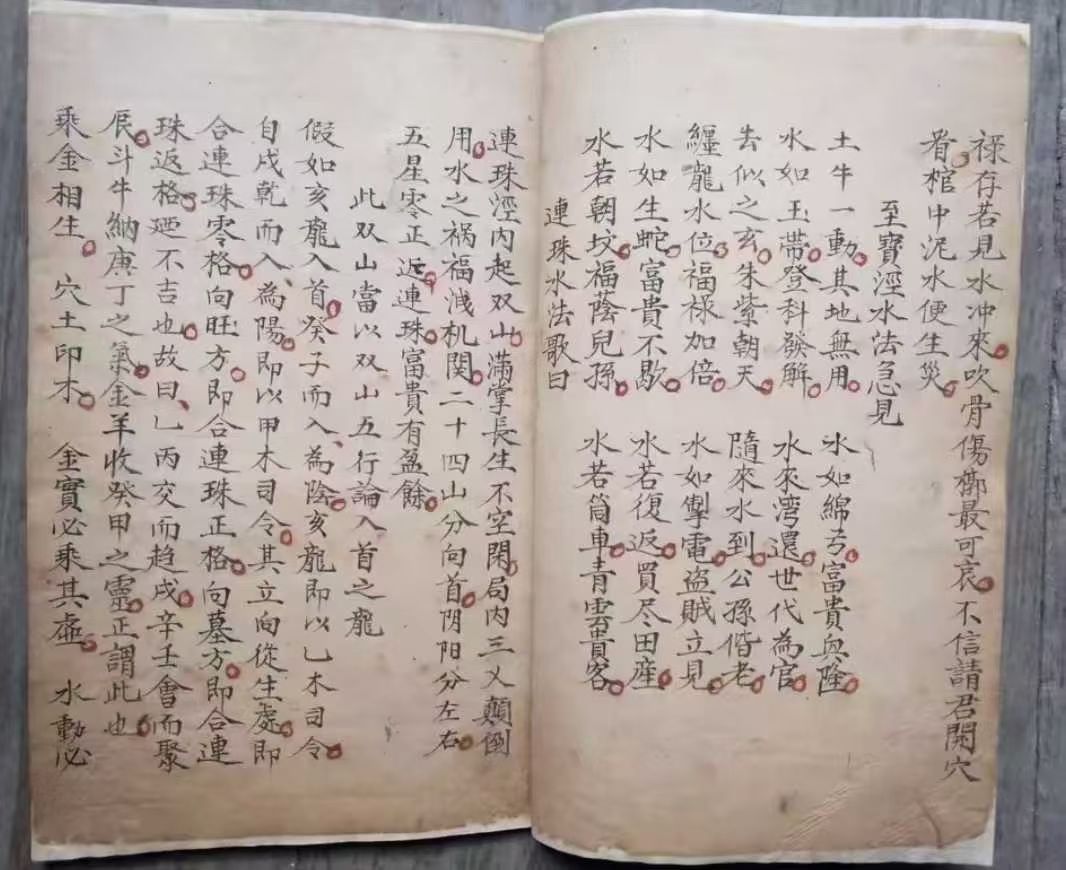 祿存若見水冲來吹骨傷槨最可哀不信請君開穴
看棺中泥水便生災
至寶淫水法急見
土牛一動其地無用 水如綿弓富貴與隆
水如玉帶登科發解 水來湾還世代為官
去似之玄朱紫朝天 隨來水到公孫偕老
纏龍水位福禄加倍 水如掣電盗賊立見
水如生蛇富貴不歇 水若復返買尽田產
水若朝坟福蔭兒孫 水若筒車青雲貴客
連珠水法歌曰
連珠淫内起双山滿掌長生不空閑局内三义顛倒
用水之禍福洩机関二十四山分向首阴阳分左右
五星零正返連珠富貴有盈餘
此双山當以双山五行論入首之龍
假如亥龍入首癸子而入、為陰亥龍即以乚木司令
自戌乾而入、為陽即以甲木司令其立向從生處即
合連珠零格向旺方即合連珠正格向墓方即合連
珠返格廼不吉也故曰、乚丙交而趋戌辛壬會而聚
辰斗牛納庚丁之氣金羊收癸甲之靈正謂此也
乘金相生 穴土印木 金實必乘其虛 水動必